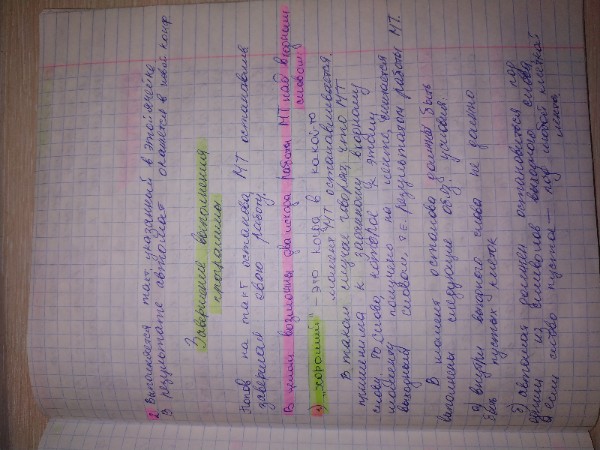 2. Выполняется такт, указанный в этой ячейке
В результате автомат окажется в новой конф
Завершение выполнения
программы
Попав на такт останова, МТ останавлив
завершая свою работу.
В целом возможны два исхода работы МТ над входным
словом:
1) „хороший" - это когда в какой-то
момент МТ останавливается.
В таком случае говорят, что МТ
применима к заданному входному
слову. То слово, которое к этому
моменту получено на ленте, считается
выходным словом, т.е. результатом работы МТ.
В момент останова должны быть
выполнены следующие обяз. условия:
а) внутри выходного слова не должно
быть пустых клеток
б) автомат должен остановиться под
одним из символов выходного слова,
а если слово пустое — под любой клеткой
ленты.